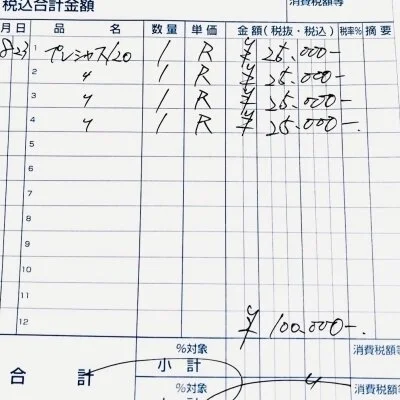 税込合計金額 消費税額等
月 日 品 名 数量 単価 金額(税抜・税込) 税率% 摘要
8 23 1 プレシャス120 1 R ¥25.000-
2 〃 1 R ¥25.000-
3 〃 1 R ¥25.000-
4 〃 1 R ¥25.000-.
5
6
7
8
9
10
11
12 ¥100.000-.
%対象 消費税額等
合計 小計 〃
%対象 消費税額等